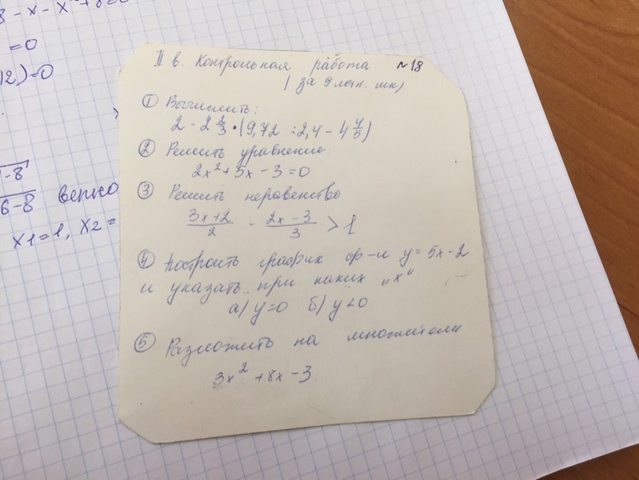 8-x-x²
=0
12)=0
-8
6-8 верно
x1=1, x2=
II в. Контрольная работа №18
( за 9 летн. шк)
① Вычислить:
2 - 2 2/3 • (9,72 : 2,4 - 4 4/5)
② Решить уравнение:
2x²+5x-3=0
③ Решить неравенство
3x+2/2 - 2x-3/3 > 1
④ Построить график ф-и y=5x-2
и указать при каких "x"
а) y=0 б) y<0
⑤ Разложить на множители
3x²+8x-3